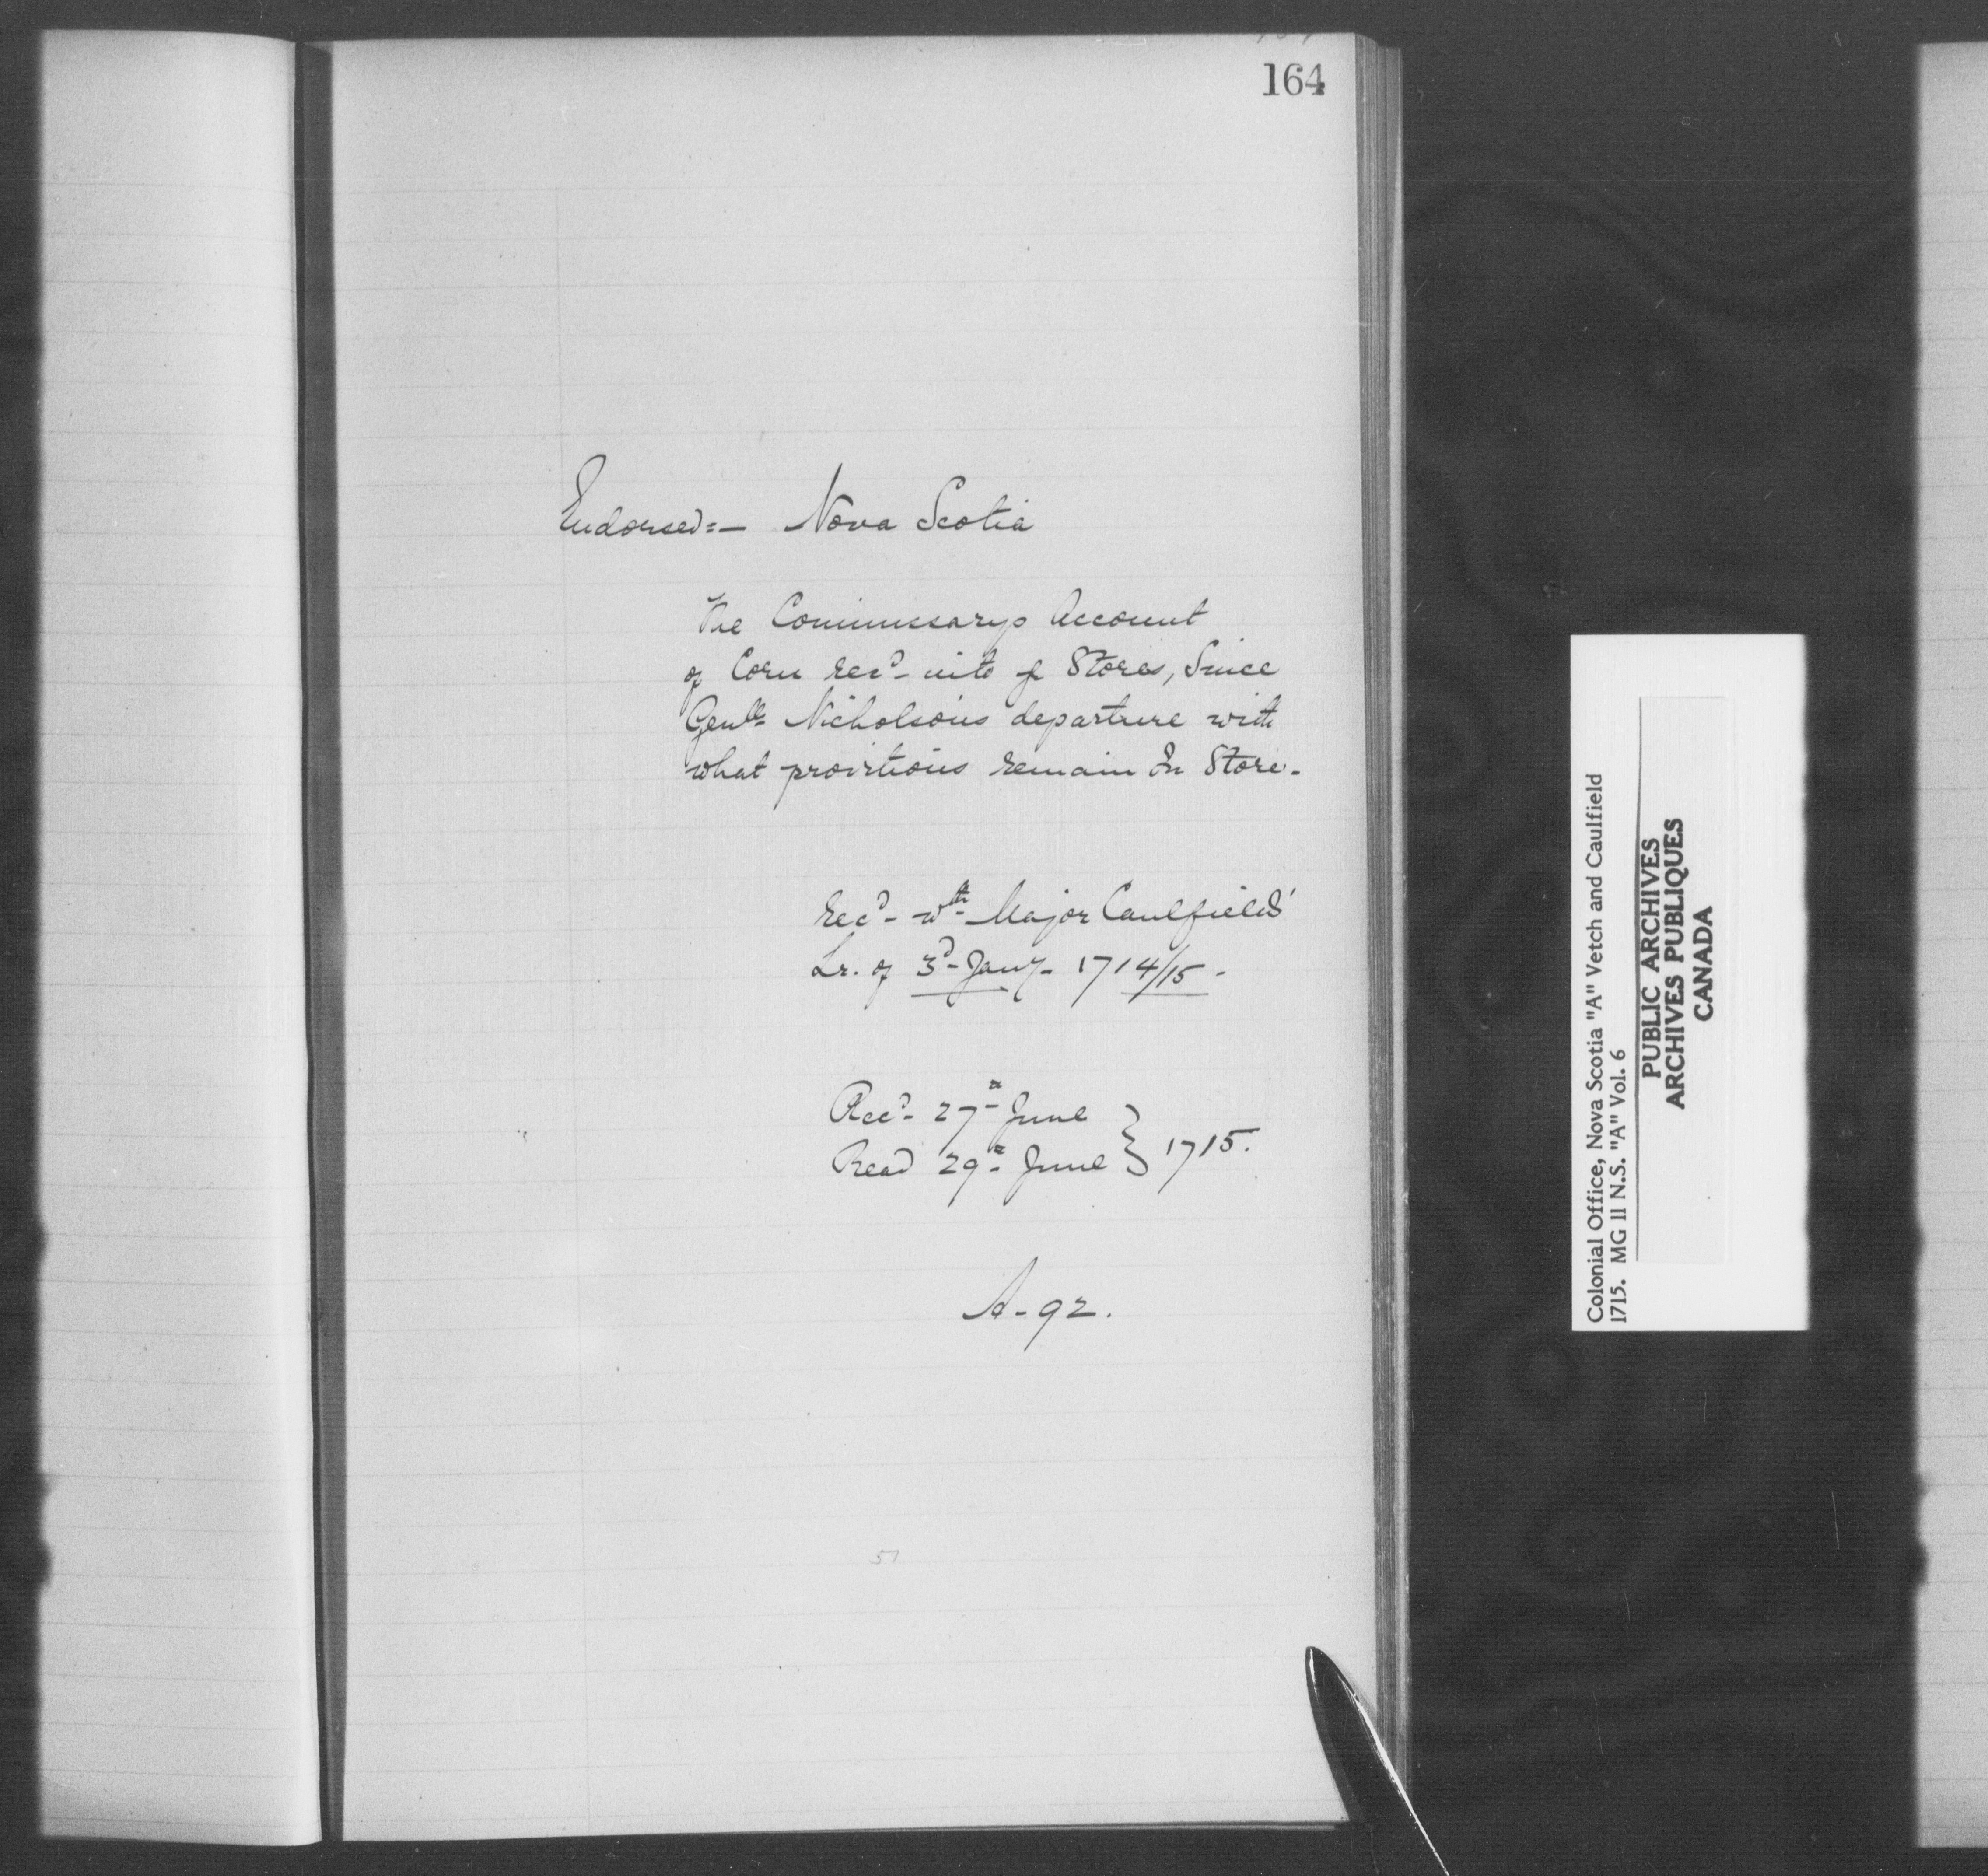 164
Endorsed:— Nova Scotia
The Commissarys Account
of Corn recd- into ye Stores, Since
Genlls Nicholsons departure with
what provitions remain In Store-
recd- wth- Major Caulfields'
Lr. of 3d- Jany- 1714/15-
Recd- 27th June
Read 29th June } 1715.
A-92.
51
Colonial Office, Nova Scotia "A" Vetch and Caulfield
1715. MG 11 N.S. "A" Vol. 6
PUBLIC ARCHIVES
ARCHIVES PUBLIQUES
CANADA